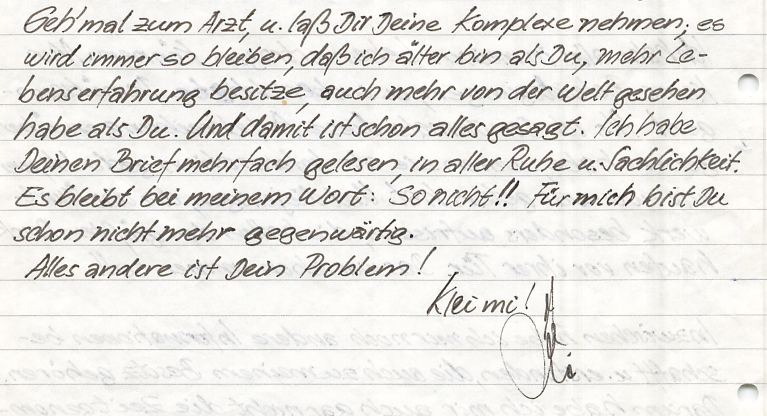 Geh' mal zum Arzt, u. laß Dir Deine Komplexe nehmen; es
wird immer so bleiben, daß ich älter bin als Du, mehr Le-
benserfahrung besitze, auch mehr von der Welt gesehen
habe als Du. Und damit ist schon alles gesagt. Ich habe
Deinen Brief mehrfach gelesen, in aller Ruhe u. Sachlichkeit.
Es bleibt bei meinem Wort: So nicht!! Für mich bist Du
schon nicht mehr gegenwärtig.
Alles andere ist Dein Problem!
Klei mi!